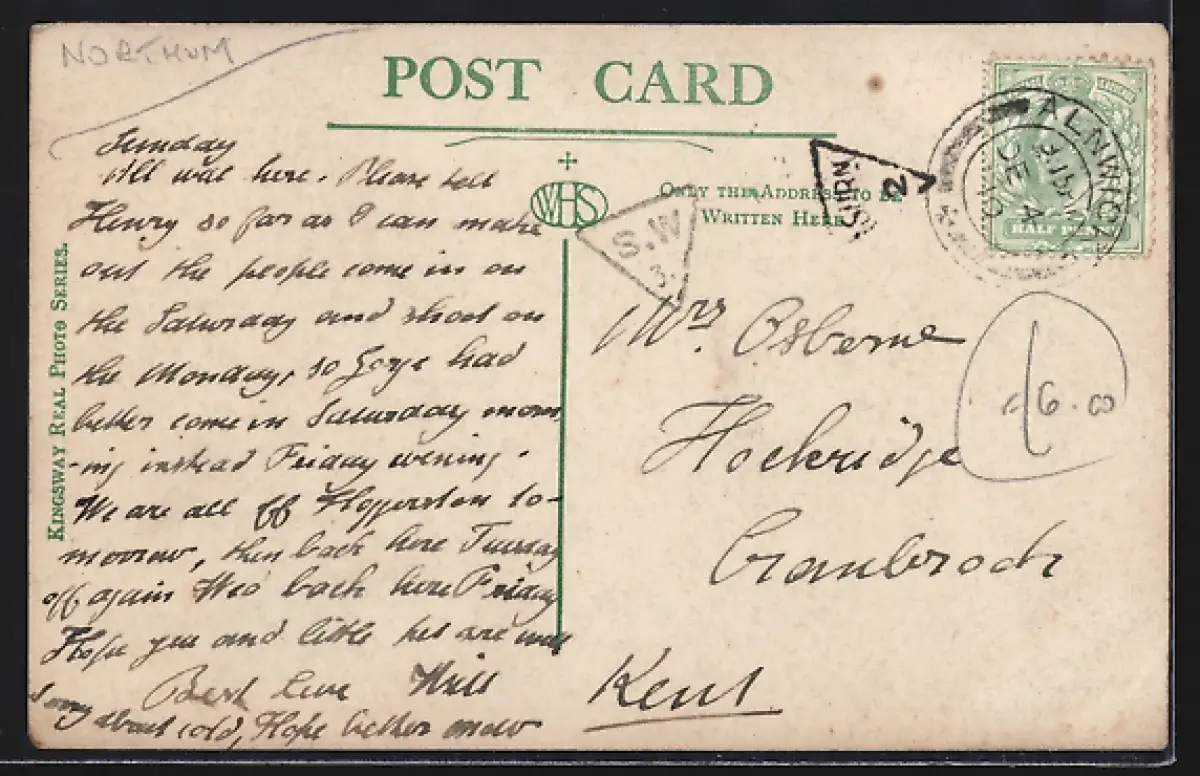 NORTHUM
POST CARD
WHS
ONLY THE ADDRESS TO BE
WRITTEN HERE
KINGSWAY REAL PHOTO SERIES.
S.W
3.
2
ALNWICK
DE 4
HALF PENNY
Sunday
All well here. Please tell
Henry so far as I can make
out the people come in on
the Saturday and shoot on
the Monday, so had
better come in Saturday morn
-ing instead Friday evening.
We are all off to-
morrow, then back here Tuesday
off again Wed back here Friday
Hope you and little pet are well
Best love Will
Sorry about cold, Hope better now
Mrs. Osborne
Hockridge
Cranbrook
Kent
£6.00